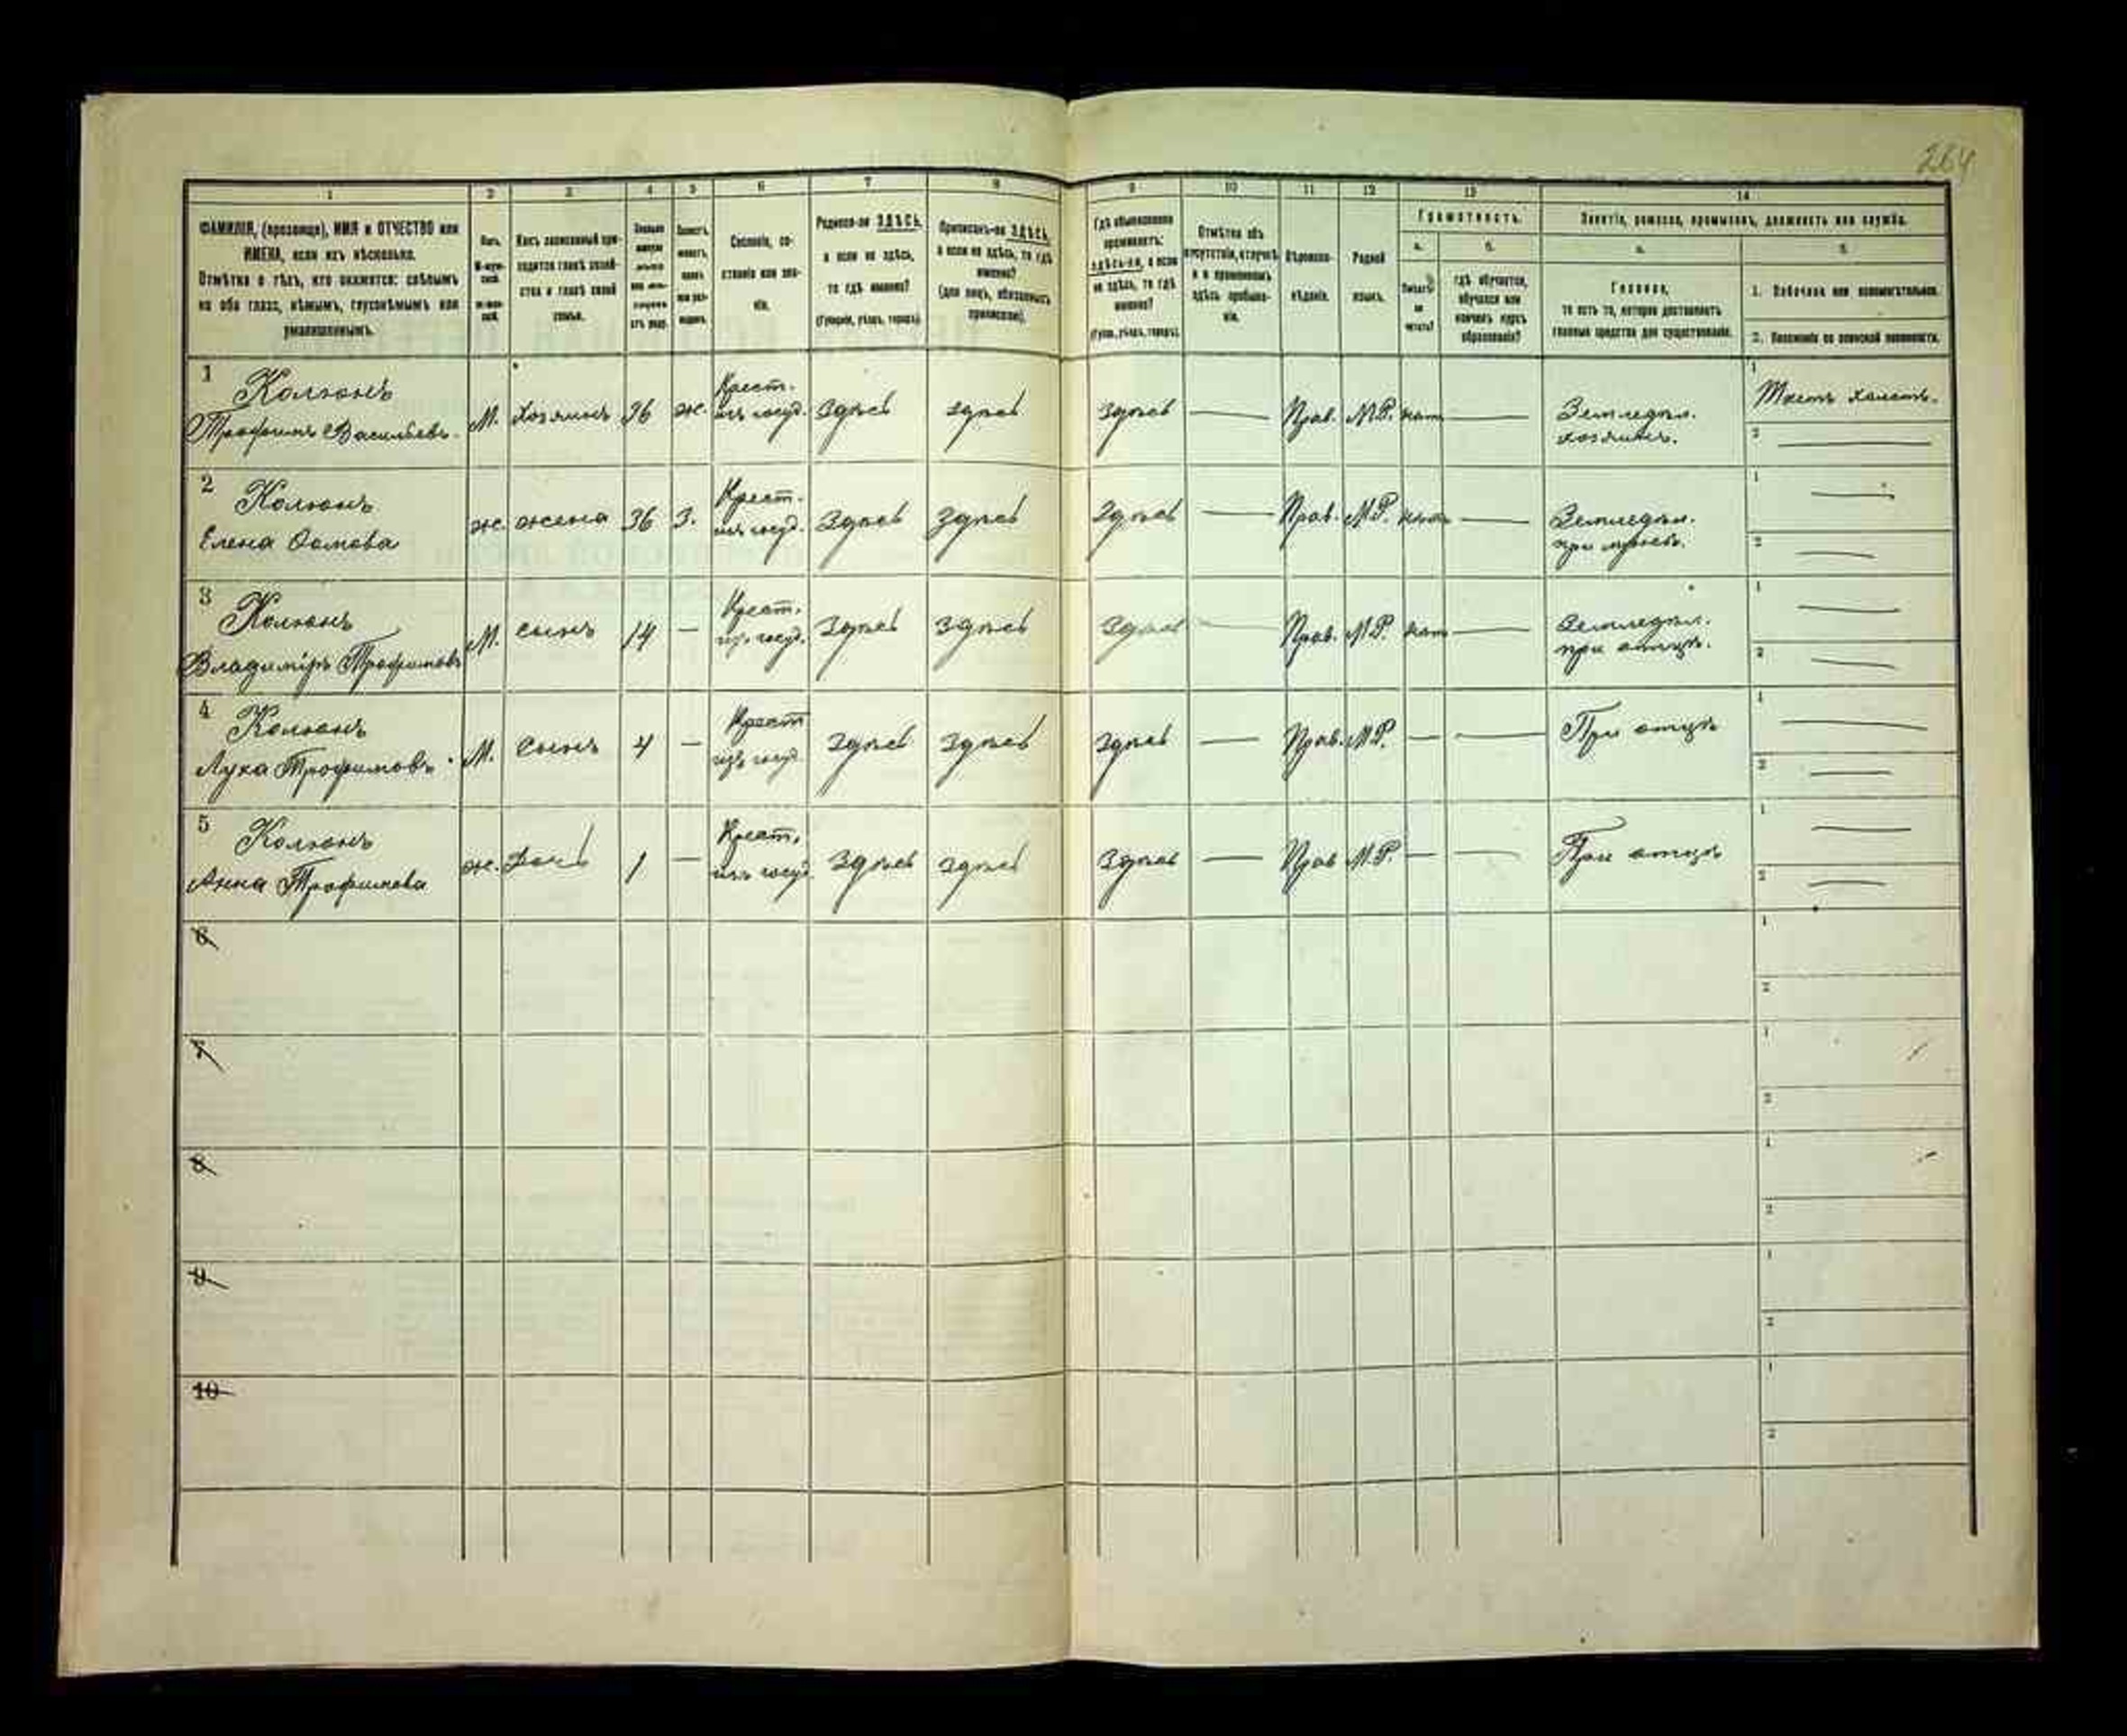 264
1 2 3 4 5 6 7 8 9 10 11 12 13 14
ФАМИЛІЯ, (прозвище), ИМЯ и ОТЧЕСТВО или
ИМЕНА, если ихъ нѣсколько.
Отмѣтка о тѣхъ, кто окажется: слѣпымъ
на оба глаза, нѣмымъ, глухонѣмымъ или
умалишеннымъ.
Полъ.
Какъ записанный при-
ходится главѣ хозяй-
ства и главѣ своей
семьи.
Сословіе, со-
стояніе или зва-
ніе.
Родился-ли ЗДѢСЬ,
а если не здѣсь,
то гдѣ именно?
(Губернія, уѣздъ, городъ).
Приписанъ-ли ЗДѢСЬ,
а если не здѣсь, то гдѣ
именно?
(для лицъ, обязанныхъ
припискою).
Гдѣ обыкновенно
проживаетъ:
здѣсь-ли, а если
не здѣсь, то гдѣ
именно?
(Губ., уѣздъ, городъ).
Отмѣтка объ
отсутствіи, отлучкѣ
и о временномъ
здѣсь пребыва-
ніи.
Вѣроиспо-
вѣданіе.
Родной
языкъ.
Грамотность.
а. б.
Умѣетъ-
ли
читать?
гдѣ обучается,
обучался или
кончилъ курсъ
образованія?
Занятіе, ремесло, промыселъ, должность или служба.
а. б.
Главное,
то есть то, которое доставляетъ
главныя средства для существованія.
1. Побочное или вспомогательное.
2. Положеніе по воинской повинности.
1 Колюнъ
Трофимъ Васильевъ. М. хозяинъ 36 ж. Крест. изъ госуд. Здѣсь здѣсь здѣсь — Прав. М.Р. нѣтъ — Земледѣл. хозяинъ. 1 Ткетъ холстъ. 2 —
2 Колюнъ
Елена Фомова ж. жена 36 З. Крест. изъ госуд. Здѣсь Здѣсь Здѣсь — Прав. М.Р. нѣтъ — Земледѣл. при мужѣ. 1 — 2 —
3 Колюнъ
Владиміръ Трофимовъ М. сынъ 14 — Крест. изъ госуд. Здѣсь Здѣсь Здѣсь — Прав. М.Р. нѣтъ — Земледѣл. при отцѣ. 1 — 2 —
4 Колюнъ
Лука Трофимовъ. М. сынъ 4 — Крест изъ госуд. Здѣсь Здѣсь Здѣсь — Прав. М.Р. — — При отцѣ 1 — 2 —
5 Колюнъ
Анна Трофимова ж. дочь 1 — Крест. изъ госуд. Здѣсь Здѣсь Здѣсь — Прав М.Р. — — При отцѣ 1 — 2 —
6 1
2
7 1
2
8 1
2
9 1
2
10 1
2